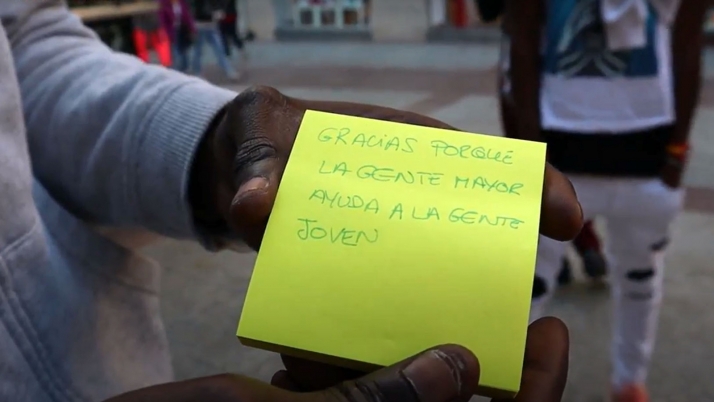 GRACIAS PORQUE
LA GENTE MAYOR
AYUDA A LA GENTE
JOVEN